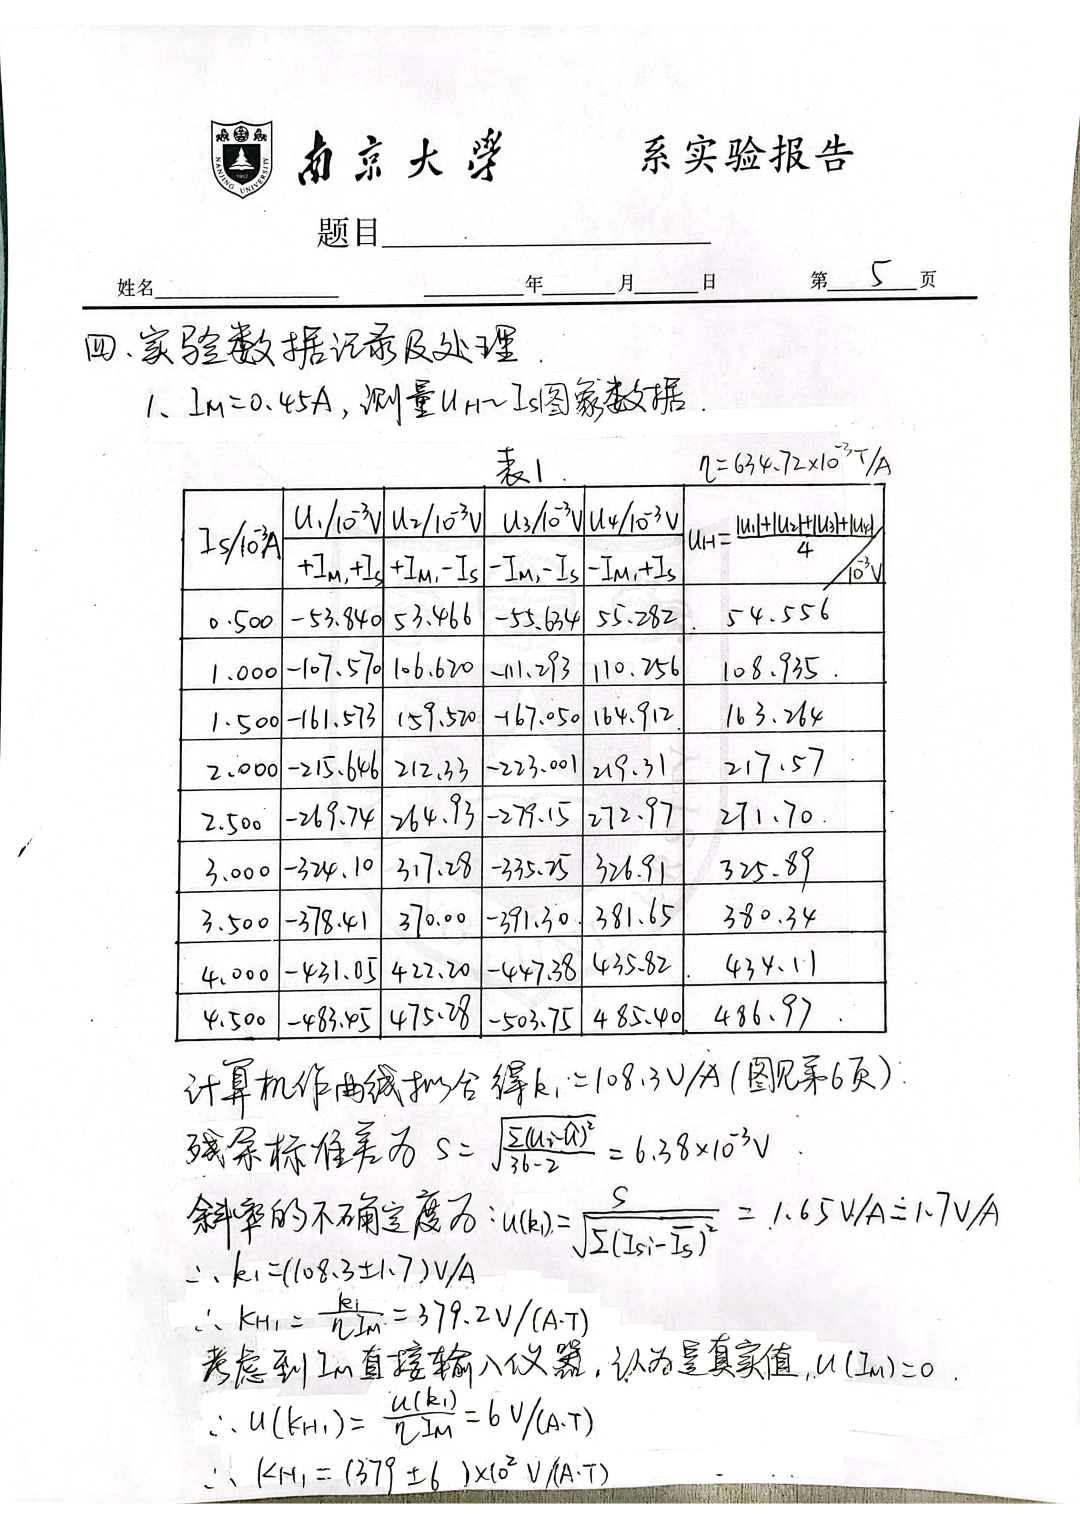 南京大学 系实验报告
题目
姓名 年 月 日 第 5 页
四、实验数据记录及处理.
1、IM=0.45A,测量UH~Is图象数据.
表1. η=634.72×10⁻³T/A
Is/10⁻³A U₁/10⁻³V U₂/10⁻³V U₃/10⁻³V U₄/10⁻³V UH=(|U₁|+|U₂|+|U₃|+|U₄|)/4 /10⁻³V
+IM,+Is +IM,-Is -IM,-Is -IM,+Is
0.500 -53.840 53.466 -55.634 55.282 54.556
1.000 -107.570 106.620 -111.293 110.256 108.935
1.500 -161.573 159.520 -167.050 164.912 163.264
2.000 -215.646 212.33 -223.001 219.31 217.57
2.500 -269.74 264.93 -279.15 272.97 271.70
3.000 -324.10 317.28 -335.25 326.91 325.89
3.500 -378.41 370.00 -391.30 381.65 380.34
4.000 -431.05 422.20 -447.38 435.82 434.11
4.500 -483.45 475.28 -503.75 485.40 486.97
计算机作曲线拟合得k₁=108.3V/A(图见第6页):
残余标准差为 S=√(Σ(Ui-Û)²/(36-2)) = 6.38×10⁻³V
斜率的不确定度为:u(k₁)=S/√(Σ(Isi-Īs)²) = 1.65V/A≐1.7V/A
∴k₁=(108.3±1.7)V/A
∴KH₁=k₁/(ηIM)=379.2V/(A·T)
考虑到IM直接输入仪器,认为是真实值,u(IM)=0.
∴u(KH₁)=u(k₁)/(ηIM)=6V/(A·T)
∴KH₁=(379±6)×10² V/(A·T)